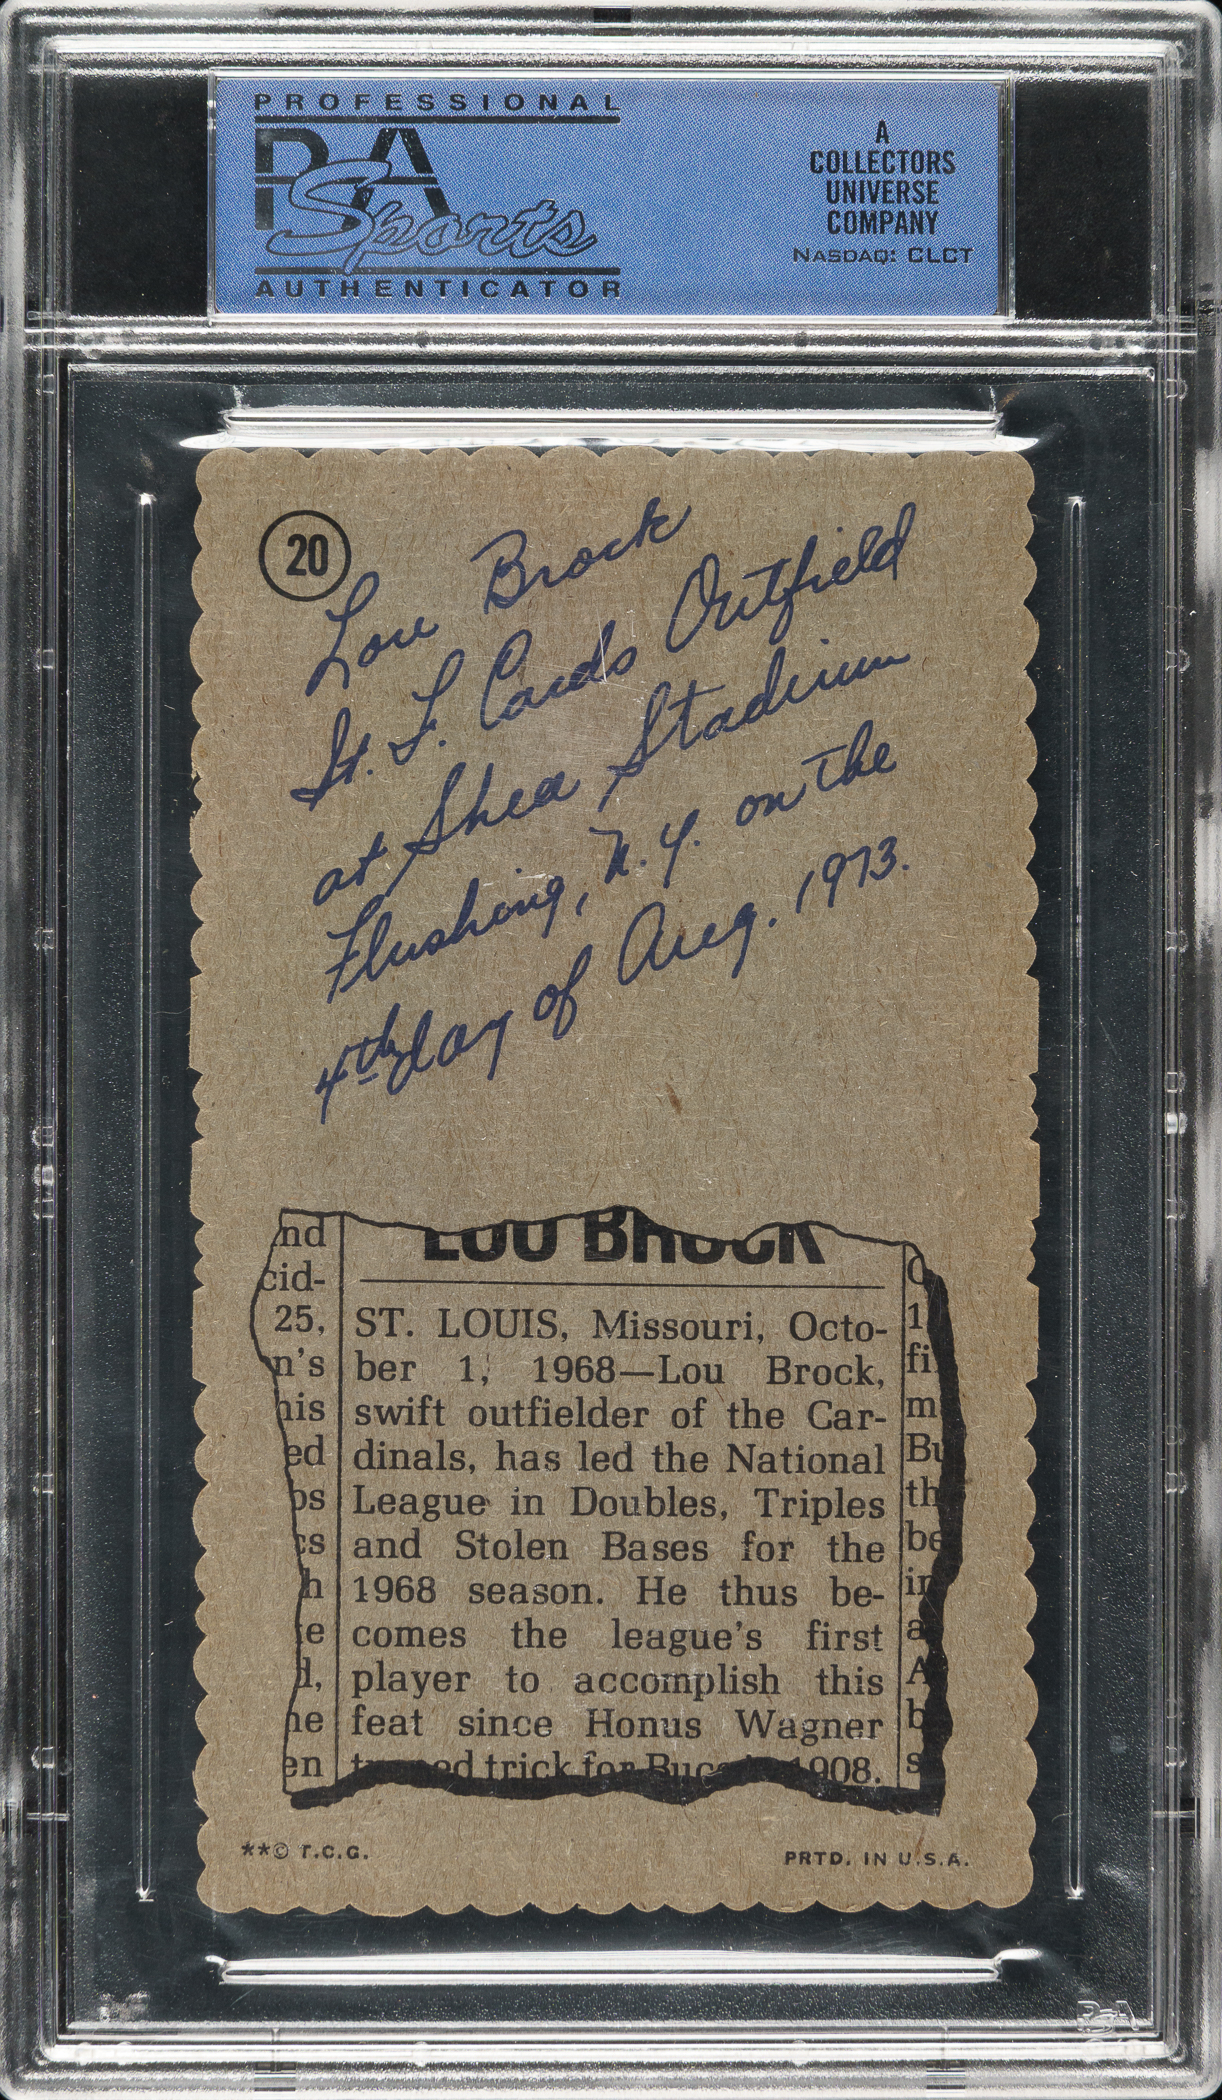 PROFESSIONAL
PSA Sports
AUTHENTICATOR
A
COLLECTORS
UNIVERSE
COMPANY
NASDAQ: CLCT
20
Lou Brock
St. L. Cards Outfield
at Shea Stadium
Flushing, N.Y. on the
4th day of Aug. 1973.
LOU BROCK
nd
cid-
25,
n's
his
ed
os
cs
h
te
d,
he
en
ST. LOUIS, Missouri, Octo-
ber 1, 1968—Lou Brock,
swift outfielder of the Car-
dinals, has led the National
League in Doubles, Triples
and Stolen Bases for the
1968 season. He thus be-
comes the league's first
player to accomplish this
feat since Honus Wagner
trick for 1908.
1
fi
m
Bu
th
be
in
a
A
b
s
**© T.C.G.
PRTD. IN U.S.A.
PSA